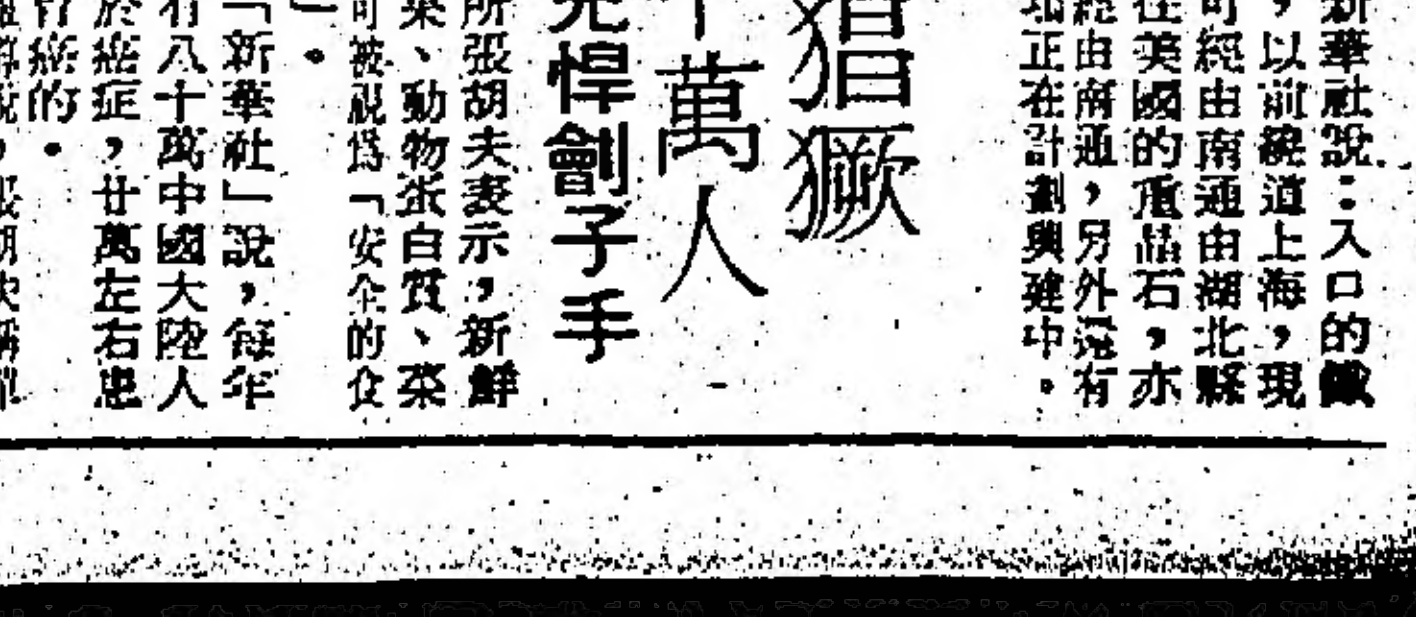 新華社說：入口的
，以前繞道上海，現
可經由南通由湖北縣
在美國的重晶石，亦
經由南通，另外還有
正在計劃興建中。
猖獗
十萬人
兇悍劊子手
所張胡夫表示，新鮮
菜、動物蛋白質、菜
可被視為「安全的食
」。
「新華社」說，每年
有八十萬中國大陸人
於癌症，廿萬左右患
胃癌的。